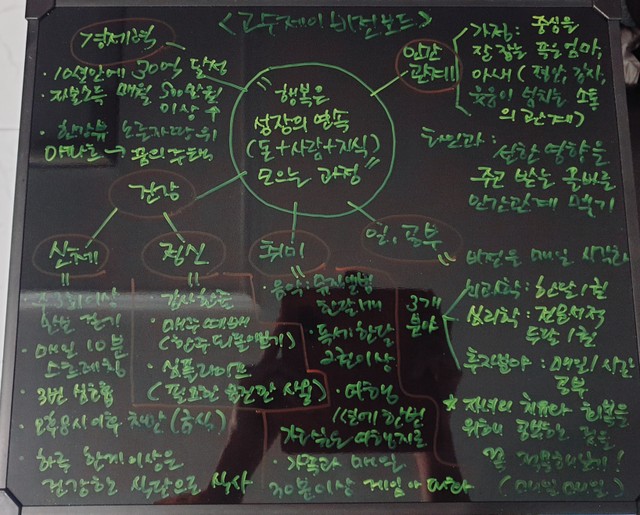 <고두제이 비전보드>
경제력
· 10년안에 30억 달성
· 자본소득 매월 500만원
이상 ↑
· 한강뷰
→ 꿈의 주택
"행복은
성장의 연속
(돈+사람+지식)
모으는 과정"
인간
관계
가정: 중심을
잘 잡는 푸을 엄마,
아내 (편안, 감사,
웃음이 넘치는 소통
의 관계)
타인과:
선한 영향을
주고 받는 올바른
인간관계 맺기
건강
신체
· 주3회이상
한번 걷기
· 매일 10분
스트레칭
· 3번 심호흡
· 오후8시 이후 차단 (금식)
· 하루 한끼이상은
건강한 식단으로 식사
정신
· 감사한줄
· 매주 예배
(한주 되돌아보기)
· 심플라이프
(필요한 물건만 사용)
취미
· 음악:
한달 1개
· 독서 한달
2권이상
· 여행
1년에 한번
가고싶은 여행지로
· 가족과 매일
30분이상 게임이 따라
일, 공부
"비전은 매일 시각화
3개
분야
뇌과학: 한달 1권
심리학: 전문서적
두달 1권
투자분야: 매일 1시간
공부
★ 자녀의 치유와 회복을
위해 공부하는 것을
꼭 접목해보기!
(매일매일)